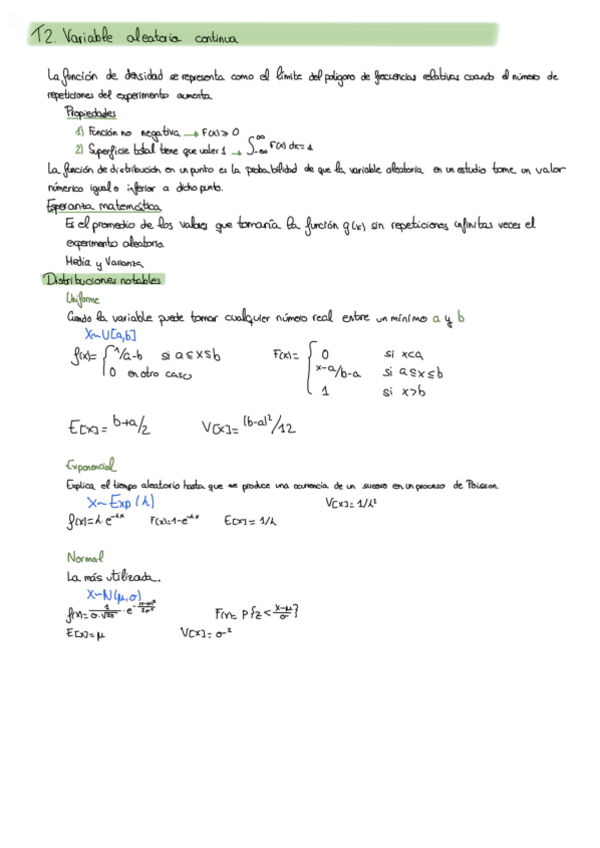 T2. Variable aleatoria continua
La función de densidad se representa como el límite del polígono de frecuencias relativas cuando el número de
repeticiones del experimento aumenta.
Propiedades
1) Función no negativa → F(x) ≥ 0
2) Superficie total tiene que valer 1 → ∫_{-∞}^{∞} F(x) dx = 1
La función de distribución en un punto es la probabilidad de que la variable aleatoria en un estudio tome un valor
númerico igual o inferior a dicho punto.
Esperanza matemática
Es el promedio de los valores que tomaría la función g(x) sin repeticiones infinitas veces el
experimento aleatorio.
Media y Varianza
Distribuciones notables
Uniforme
Cuando la variable puede tomar cualquier número real entre un mínimo a y b
X~U[a,b]
f(x)= { 1/a-b si a≤x≤b F(x)= { 0 si x<a
0 en otro caso x-a/b-a si a≤x≤b
1 si x>b
E[x]= b+a/2 V[x]= (b-a)²/12
Exponencial
Explica el tiempo aleatorio hasta que se produce una ocurrencia de un suceso en un proceso de Poisson.
X~Exp(λ) V[x]=1/λ²
f(x)=λ·e^{-λx} F(x)=1-e^{-λx} E[x]=1/λ
Normal
La más utilizada.
X~N(μ,σ)
f(x)= 1/σ·√2π · e^{-(x-μ)²/2σ²} F(x)= P{z < x-μ/σ}
E[x]=μ V[x]=σ²